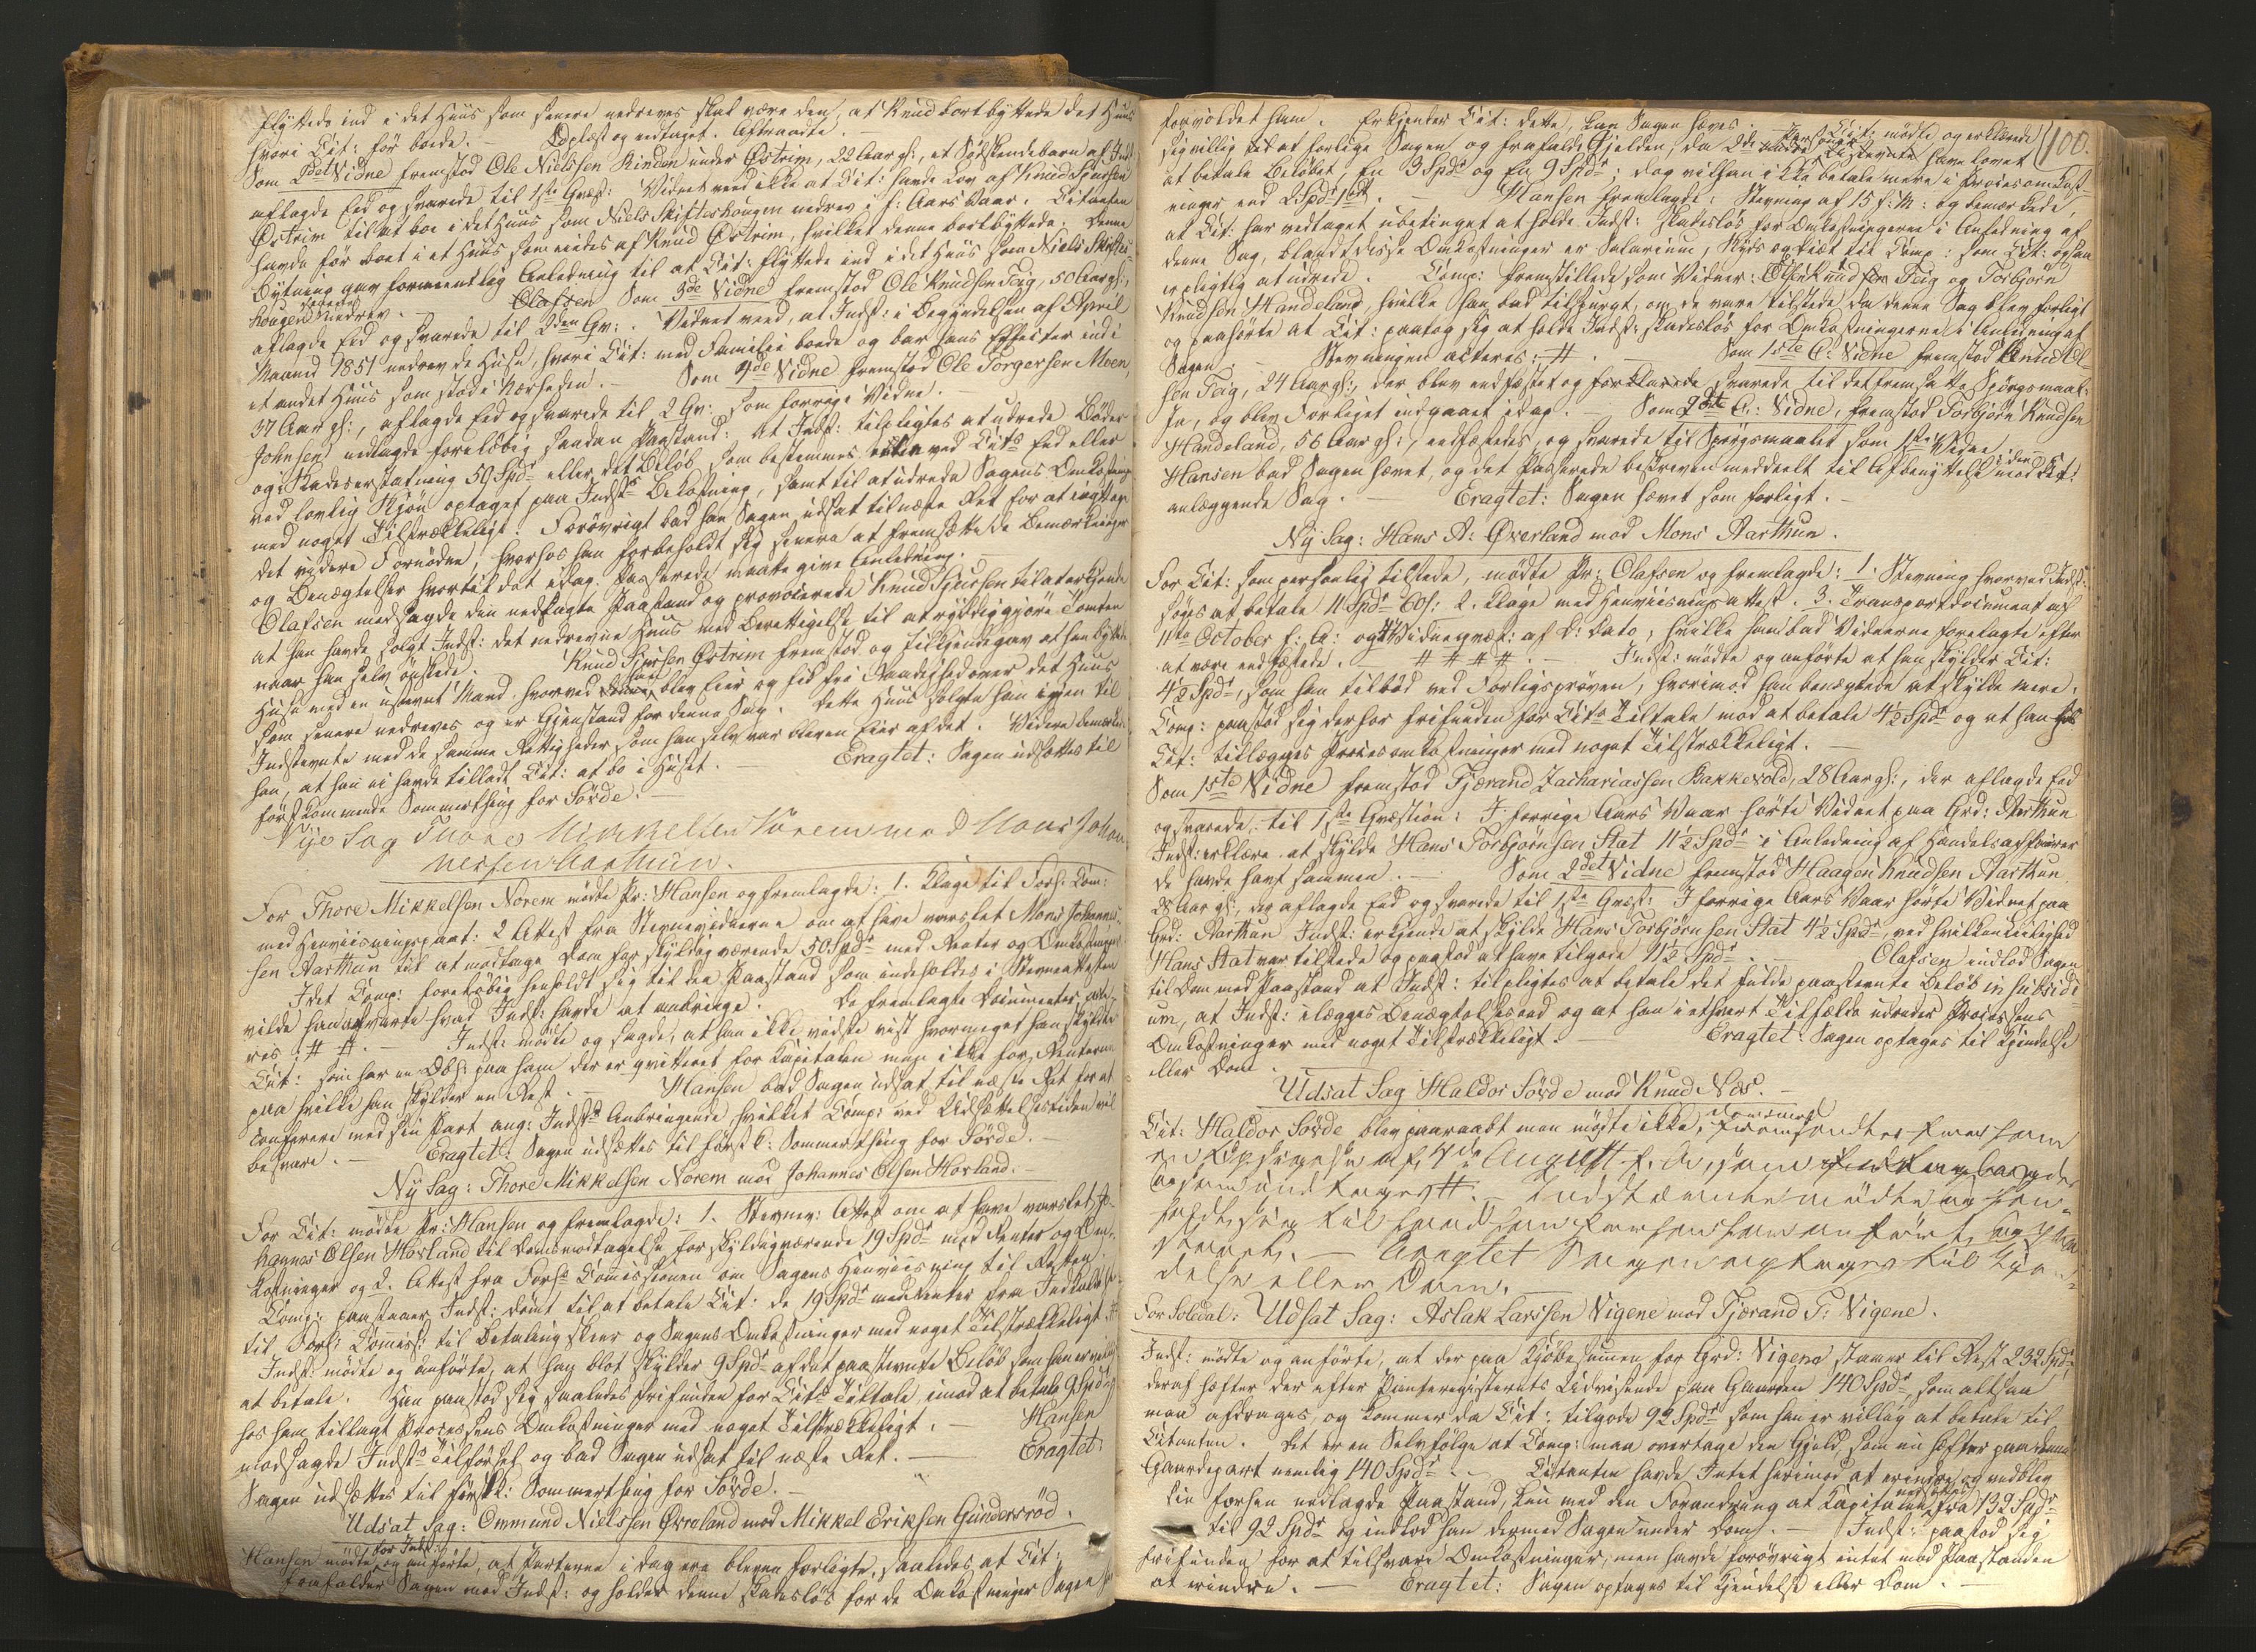 flyttede ind i det Huus som senere nedreves skal være den, at Knud bortbyttede det Huus
hvori Cit: før boede. — Oplæst og vedtaget. Aftraadte. —
Som 2det Vidne fremstod Ole Nielssen Rinden under Østrim, 22 Aar gl:, et Sødskendebarn af Ind
aflagde Eed og svarede til 1ste Qvæst: Vidnet veed ikke at Cit: havde Lov af Knud Sjursen
Østrim til at boe i det Huus som Niels Skifteshougen nedrev i f: Aars Vaar. Citanten
havde før boet i et Huus som eiedes af Knud Østrim, hvilket denne bortbyttede. Denne
Bytning gav formeentlig Anledning til at Cit: flyttede ind i det Huus som Niels Skiftes-
hougen senere nedrev. — Olafsen Som 3de Vidne fremstod Ole Knudsen Teig, 50 Aar gl:,
aflagde Eed og svarede til 2den Qv: Vidnet veed, at Indst: i Begyndelsen af April
Maaned 1851 nedrev de Huse, hvori Cit: med Familie boede og bar hans Effecter ind i
et andet Huus som stod i Nærheden. — Som 4de Vidne fremstod Ole Torgersen Moen,
37 Aar gl:, aflagde Eed og svarede til 2 Qv: som forrige Vidne.
Johnsen nedlagde foreløbig saadan Paastand: At Indst: tilpligtes at udrede Bøder
og i Skadeserstatning 50 Spdr eller det Beløb som bestemmes ved Cits Eed eller
ved lovlig Skjøn optaget paa Indsts Bekostning, samt til at udrede Sagens Omkostning
med noget Tilstrækkeligt. Forøvrigt bad han Sagen udsat til næste Ret for at iagttage
det videre Fornødne, hvorhos han forbeholdt sig senere at fremsætte de Bemærkninger
og Benægtelser hvortil det idag Passerede maatte give Anledning. —
Olafsen modsagde den nedlagte Paastand og provocerede Knud Sjursen til at erkjende
at han havde solgt Indst: det nedrevne Huus med Berettigelse til at ryddiggjøre Tomten
naar han selv ønskede. Knud Sjursen Østrim fremstod og tilkjendegav at han byttede
Huse med en ustevnt Mand hvorved han blev Eier og fik fri Raadighed over det Huus
som senere nedreves og er Gjenstand for denne Sag. Dette Huus solgte han igjen til
Indstevnte med de samme Rettigheder som han selv var bleven Eier af det. Videre bemærkede
han, at han ei havde tilladt Cit: at bo i Huset. — Eragtet: Sagen udsættes til
førstkommende Sommerthing for Sørde. —
Nye Sag Thore Mikkelsen Norem mod Mons Johan
nessen Aarthun.
For Thore Mikkelsen Norem mødte Pr: Hansen og fremlagde: 1. Klage til Forl: Com:
med Henviisningspaat: 2 Attest fra Stevnevidnerne om at have varslet Mons Johannes-
sen Aarthun til at modtage Dom for skyldigværende 50 Spdr med Renter og Omkostninger
Idet Comp: foreløbig henholdt sig til den Paastand som indeholdes i Stevneattesten
vilde han afvarte hvad Indst: havde at anbringe. De fremlagte Documenter acte-
res: # #. — Indst: mødte og sagde, at han ikke vidste vist hvormeget han skylder
Cit: som har en Obl: paa ham der er qvitteret for Kapitalen men ikke for Renterne
paa hvilke han skylder en Rest. — Hansen bad Sagen udsat til næste Ret for at
conferere med sin Part ang: Indsts Anbringende hvilket Comp: ved Udsættelsestiden vil
besvare. — Eragtet: Sagen udsættes til først k: Sommerthing for Sørde. —
Ny Sag: Thore Mikkelsen Norem mod Johannes Olsen Hovland. —
For Cit: mødte Pr: Hansen og fremlagde: 1. Stevnev: Attest om at have varslet Jo-
hannes Olsen Hovland til Domsmodtagelse for skyldigværende 19 Spdr med Renter og Om-
kostninger og 2. Attest fra Forls Comissionen om Sagens Henviisning til Retten.
Comp: paastaaer Indst: dømt til at betale Cit: de 19 Spdr med Renter fra Indkaldelsen
til Forl: Comiss: til Betaling skeer og Sagens Omkostninger med noget Tilstrækkeligt. ##
Indst: mødte og anførte, at han blot skylder 9 Spdr af det paastevnte Beløb som han er villig
at betale. Han paastod sig saaledes frifunden for Cits Tiltale imod at betale 9 Spdr og
hos ham tillagt Processens Omkostninger med noget Tilstrækkeligt. — Hansen
modsagde Indsts Tilførsel og bad Sagen udsat til næste Ret. — Eragtet:
Sagen udsættes til først k: Sommerthing for Sørde. —
Udsat Sag: Ommund Nielssen Øvreland mod Mikkel Eriksen Gundersrød.
Hansen mødte for Indst: og anførte, at Parterne i dag ere blevne forligte, saaledes at Cit:
frafalder Sagen mod Indst: og holder denne skadesløs for de Omkostninger Sagen har
100.
forvoldet ham. Erkjender Cit: dette, kan Sagen hæves. — Cit: mødte og erklærede
sig villig til at forlige Sagen og frafalde Gjelden, da 2de have lovet
at betale Beløbet, En 3 Spdr og En 9 Spdr; dog vil han ikke betale mere i Procesomkost-
ninger end 2 Spdr. — Hansen fremlagde: Stevning af 15 f: M: og bemærkede,
at Cit: har vedtaget ubetinget at holde Indst: skadesløs for Omkostningerne i Anledning af
denne Sag, blandt disse Omkostninger er Salarium, Skyds og Diæt til Comp: som Cit: ogsaa
er pligtig at udrede. Comp: fremstillede som Vidner: Knud Teig og Torbjørn
Knudsen Handeland, hvilke han bad tilspurgt, om de vare tilstede da denne Sag blev forligt
og paahørte at Cit: paatog sig at holde Indst: skadesløs for Omkostningerne i Anledning af
Sagen. — Stevningen acteres: #. — Som 1ste C: Vidne fremstod Knud Ol-
sen Teig, 24 Aar gl:, der blev eedfæstet og svarede til det fremsatte Spørgsmaal:
Ja, og blev Forliget indgaaet idag. — Som 2det C: Vidne, fremstod Torbjørn Knudsen
Handeland, 56 Aar gl:, eedfæstedes, og svarede til Spørgsmaalet som 1ste Vidne.
Hansen bad Sagen hævet, og det Passerede beskreven meddeelt til Afbenyttelse i den mod Cit:
anlæggende Sag. — Eragtet: Sagen hævet som forligt. —
Ny Sag: Hans A: Øverland mod Mons Aarthun.
For Cit: som personlig tilstede, mødte Pr: Olafsen og fremlagde: 1. Stevning hvorved Indst:
søges at betale 11 Spdr 60 s: 2. Klage med Henviisningsattest. 3. Transportdocument af
11te October f: A: og 4. Vidneqvæst: af D: Dato, hvilke han bad Vidnerne forelagte efter
at være eedfæstede. — # # # #. — Indst: mødte og anførte at han skylder Cit:
4½ Spdr, som han tilbød ved Forligsprøven, hvorimod han benægtede at skylde mere.
Comp: paastod sig derfor frifunden for Cits Tiltale mod at betale 4½ Spdr og at han hos
Cit: tillægges Procesomkostninger med noget Tilstrækkeligt. —
Som 1ste Vidne fremstod Tjerand Zachariassen Bakkevold, 28 Aar gl:, der aflagde Eed
og svarede til 1ste Qvæstion: I forrige Aars Vaar hørte Vidnet paa Grd: Aarthun
Indst: erklære at skylde Hans Torbjørnsen Stat 11½ Spdr i Anledning af Handelsaffairer
de havde havt sammen. — Som 2det Vidne fremstod Haagen Knudsen Aarthun
28 Aar gl:, der aflagde Eed og svarede til 1ste Qvæst: I forrige Aars Vaar hørte Vidnet paa
Grd: Aarthun Indst: erkjende at skylde Hans Torbjørnsen Stat 4½ Spdr, ved hvilken Leilighed
Hans Stat var tilstede og paastod at have tilgode 11½ Spdr. — Olafsen indlod Sagen
til Dom med Paastand at Indst: tilpligtes at betale det fulde paastevnte Beløb in subsidi-
um, at Indst: ilægges Benægtelseseed og at han i ethvert Tilfælde udreder Processens
Omkostninger med noget Tilstrækkeligt. — Eragtet: Sagen optages til Kjendelse
eller Dom.
Udsat Sag Haldor Sørde mod Knud Næs. —
Cit: Haldor Sørde blev paaraabt men mødte ikke,
en af 4de August f. A, som
# Indstævnte mødte og hen-
holdt sig til hvad han forhen har anført,
— Eragtet Sagen optages til Kjen-
delse eller Dom. —
For Soledal: Udsat Sag: Aslak Larssen Vigene mod Tjerand T: Vigene.
Indst: mødte og anførte, at der paa Kjøbesummen for Grd: Vigene staaer til Rest 232 Spdr
deraf hefter der efter Panteregisterets Udvisende paa Gaarden 140 Spdr, som altsaa
maa afdrages, og kommer da Cit: tilgode 92 Spdr som han er villig at betale til
Citanten. Det er en Selvfølge at Comp: maa overtage den Gjeld, som nu hefter paa denne
Gaardepart nemlig 140 Spdr. — Citanten havde Intet herimod at erindre og vedblev
sin forhen nedlagde Paastand, kun med den Forandring at Kapitalen nedsættes fra 132 Spdr
til 92 Spdr og indlod han dermed Sagen under Dom. — Indst: paastod sig
frifunden for at tilsvare Omkostninger, men havde forøvrigt intet mod Paastanden
at erindre. — Eragtet: Sagen optages til Kjendelse eller Dom. —